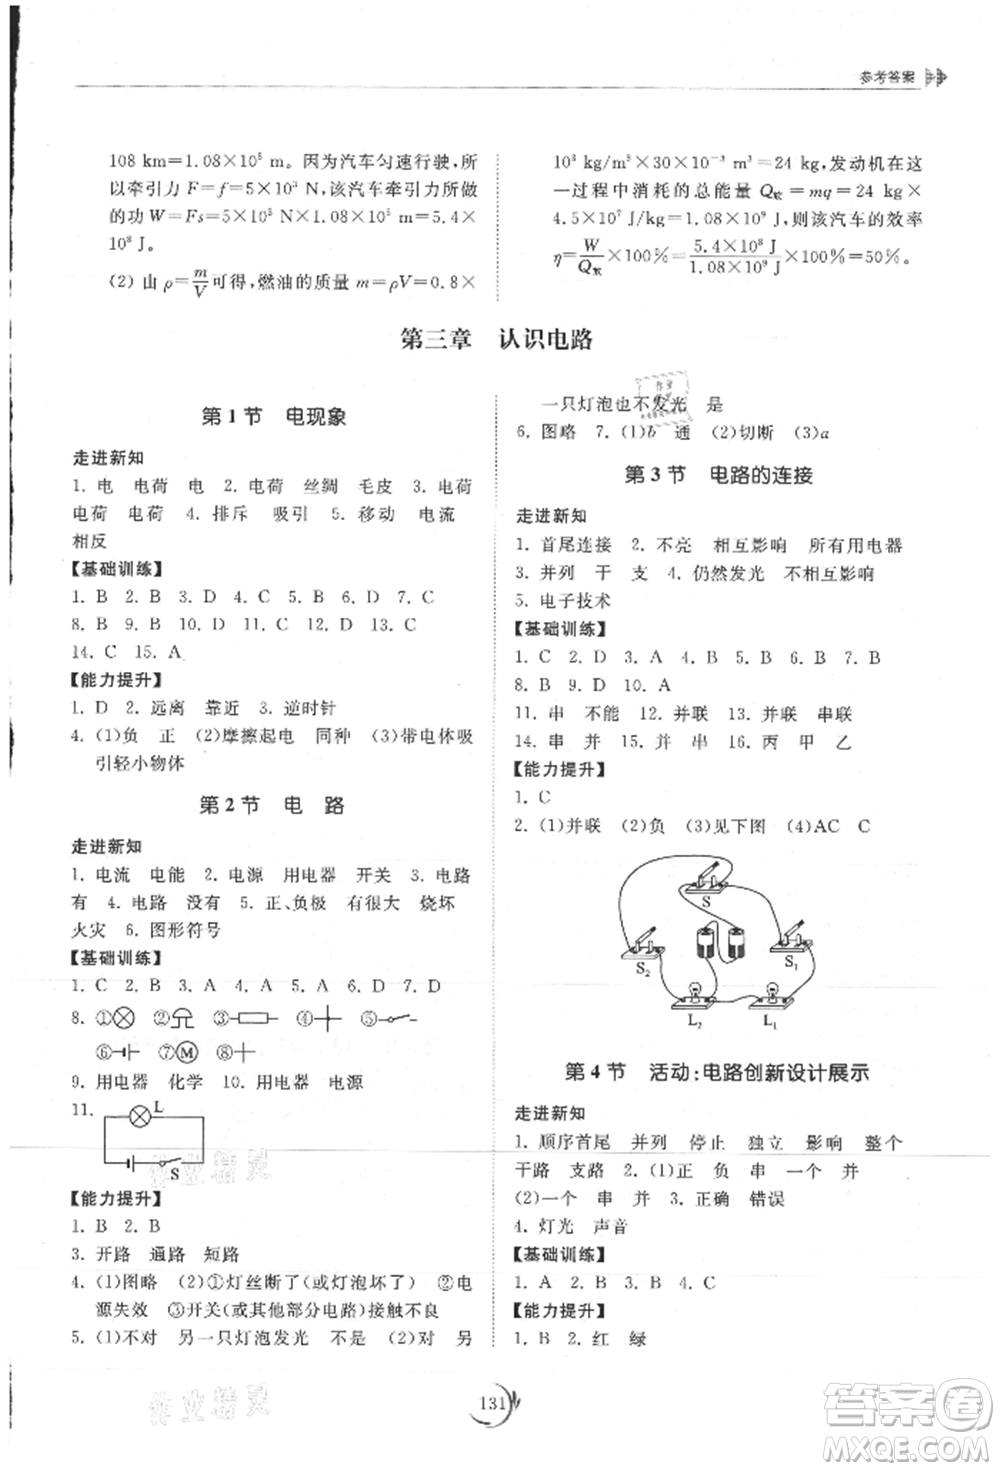 参考答案
108 km=1.08×10⁵ m。因为汽车匀速行驶,所
以牵引力 F=f=5×10³ N,该汽车牵引力所做
的功 W=Fs=5×10³ N×1.08×10⁵ m=5.4×
10⁸ J。
(2) 由 ρ=m/V 可得,燃油的质量 m=ρV=0.8×
10³ kg/m³×30×10⁻³ m³=24 kg,发动机在这
一过程中消耗的总能量 Q放=mq=24 kg×
4.5×10⁷ J/kg=1.08×10⁹ J,则该汽车的效率
η=W/Q放×100%=5.4×10⁸ J/1.08×10⁹ J×100%=50%。
第三章 认识电路
第 1 节 电现象
走进新知
1. 电 电荷 电 2. 电荷 丝绸 毛皮 3. 电荷
电荷 电荷 4. 排斥 吸引 5. 移动 电流
相反
【基础训练】
1. B 2. B 3. A 4. D 5. D 6. D 7. C
8. B 9. B 10. D 11. C 12. D 13. C
14. C 15. A
【能力提升】
1. D 2. 远离 靠近 3. 逆时针
4. (1)负 正 (2)摩擦起电 同种 (3)带电体吸
引轻小物体
第 2 节 电 路
走进新知
1. 电流 电能 2. 电源 用电器 开关 3. 电路
有 4. 电路 没有 5. 正、负极 有很大 烧坏
火灾 6. 图形符号
【基础训练】
1. C 2. B 3. A 4. A 5. D 6. C 7. D
8. ① ② ③ ④ ⑤
⑥ ⑦ M ⑧
9. 用电器 化学 10. 用电器 电源
11.
L
S
【能力提升】
1. B 2. B
3. 开路 通路 短路
4. (1)图略 (2)①灯丝断了(或灯泡坏了) ②电
源失效 ③开关(或其他部分电路)接触不良
5. (1)不对 另一只灯泡发光 不是 (2)对 另
一只灯泡也不发光 是
6. 图略 7. (1)b 通 (2)切断 (3)a
第 3 节 电路的连接
走进新知
1. 首尾连接 2. 不亮 相互影响 所有用电器
3. 并列 干 支 4. 仍然发光 不相互影响
5. 电子技术
【基础训练】
1. C 2. D 3. A 4. C 5. D 6. A 7. B
8. B 9. D 10. A
11. 串 不能 12. 并联 13. 并联 串联
14. 串 并 15. 并 串 16. 丙 甲 乙
【能力提升】
1. C
2. (1)并联 (2)负 (3)见下图 (4)AC C
S
S₂
S₁
L₂
L₁
第 4 节 活动:电路创新设计展示
走进新知
1. 顺序首尾 并列 停止 独立 影响 整个
干路 支路 2. (1)正 负 串 一个 并
(2)一个 串 并 3. 正确 错误
4. 灯光 声音
【基础训练】
1. A 2. B 3. B 4. C
【能力提升】
1. B 2. 红 绿
131
作业精灵
作业精灵
答案圈
MXQE.COM